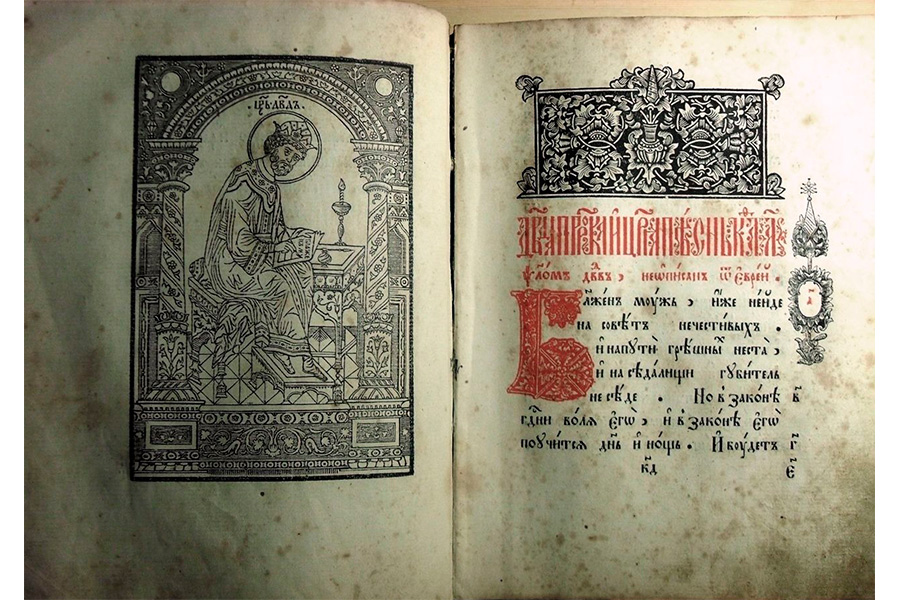 ·ЦР҃Ь·ДВ҃ДЪ·
ДВ҃ДА ПРР҃ОКА И ЦР҃Ѧ ПѢСНЬ
ѱало́мъ дв҃дв, неѡпи́сан ѿ є҆врє́й.
Блаже́нъ моу́жъ, и҆́же не́йде
на совѣ́тъ нечести́выхъ.
и҆ на пути̑ грѣ́шныⷯ не ста̀,
и҆ на сѣда́лищи губи́тель
не сѣ́де. Но в зако́нѣ в҃
гдⷭ҇ни во́лѧ є҆гѡ̀, и҆ в зако́нѣ є҆гѡ̀
поучи́тсѧ дн҃ь и҆ но́щь. И҆ боу́детъ г҃
к҃д є҃